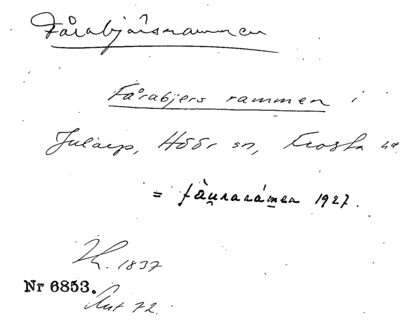 Fårabjärsrammen
Fårabjers rammen i
Jularp, Höör sn, Frosta hd
= fàu̯raramen 1927.
1837
Nr 6853.
Aut 72.